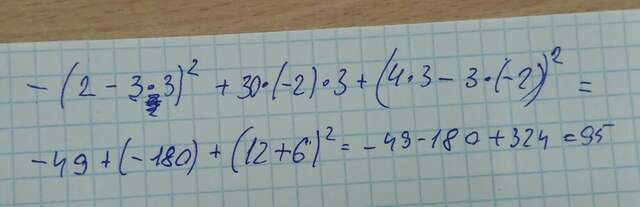 - (2 - 3·3)² + 30·(-2)·3 + (4·3 - 3·(-2))² =
-49 + (-180) + (12+6)² = -49-180+324=95